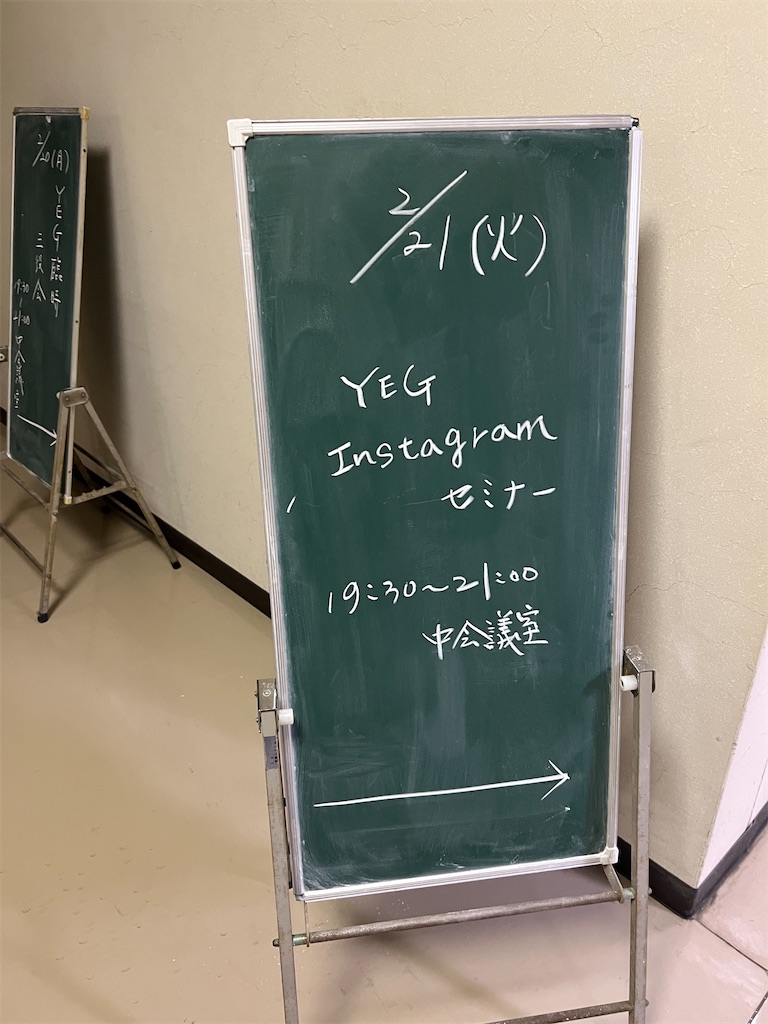 2/21(火)
YEG
Instagram
セミナー
19:30～21:00
中会議室
2/20(月)
YEG臨時
三役会
19:30～21:00 中会議室